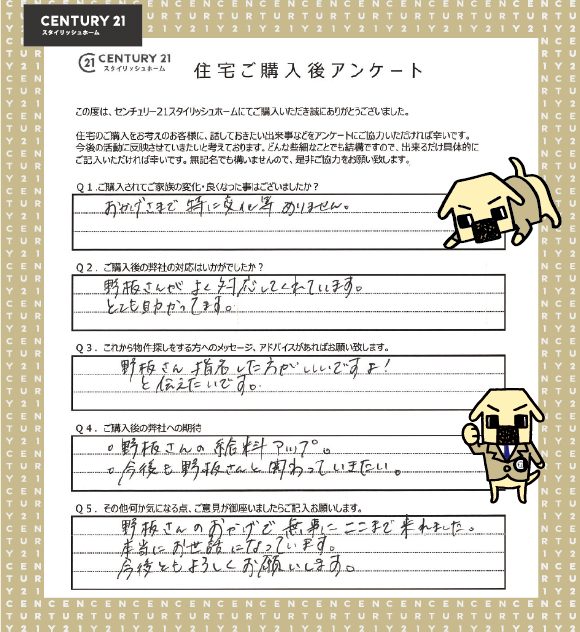 CENTURY 21
スタイリッシュホーム
21 CENTURY 21
スタイリッシュホーム
住宅ご購入後アンケート
この度は、センチュリー21スタイリッシュホームにてご購入いただき誠にありがとうございました。
住宅のご購入をお考えのお客様に、話しておきたい出来事などをアンケートにご協力いただければ幸いです。
今後の活動に反映させていきたいと考えております。どんな些細なことでも結構ですので、出来るだけ具体的に
ご記入いただければ幸いです。無記名でも構いませんので、是非ご協力をお願い致します。
Q1.ご購入されてご家族の変化・良くなった事はございましたか?
おかげさまで特に変化等ありません。
Q2.ご購入後の弊社の対応はいかがでしたか?
野板さんがよく対応してくれています。
とても助かってます。
Q3.これから物件探しをする方へのメッセージ、アドバイスがあればお願い致します。
野板さん指名した方がいいですよ!
と伝えたいです。
Q4.ご購入後の弊社への期待
。野板さんの給料アップ。
。今後も野板さんと関わっていきたい。
Q5.その他何か気になる点、ご意見が御座いましたらご記入お願いします。
野板さんのおかげで無事にここまで来れました。
本当にお世話になっています。
今後ともよろしくお願いします。